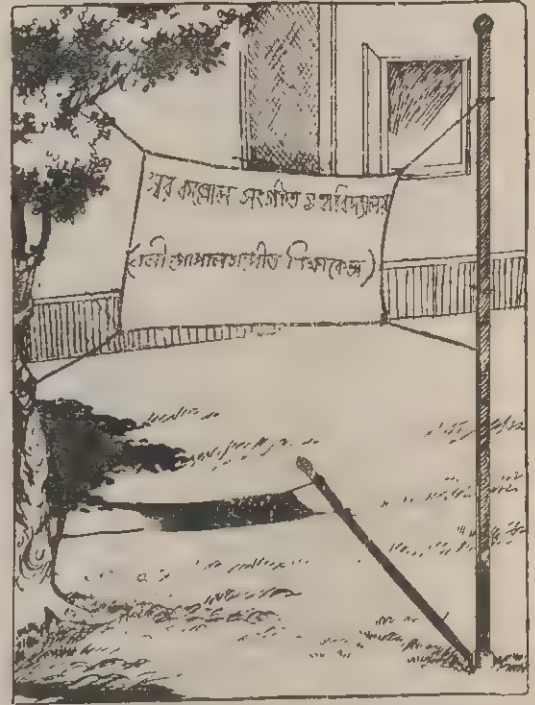 সুর কল্লোল সংগীত মহাবিদ্যালয়
সংগীত শিক্ষাকেন্দ্র)